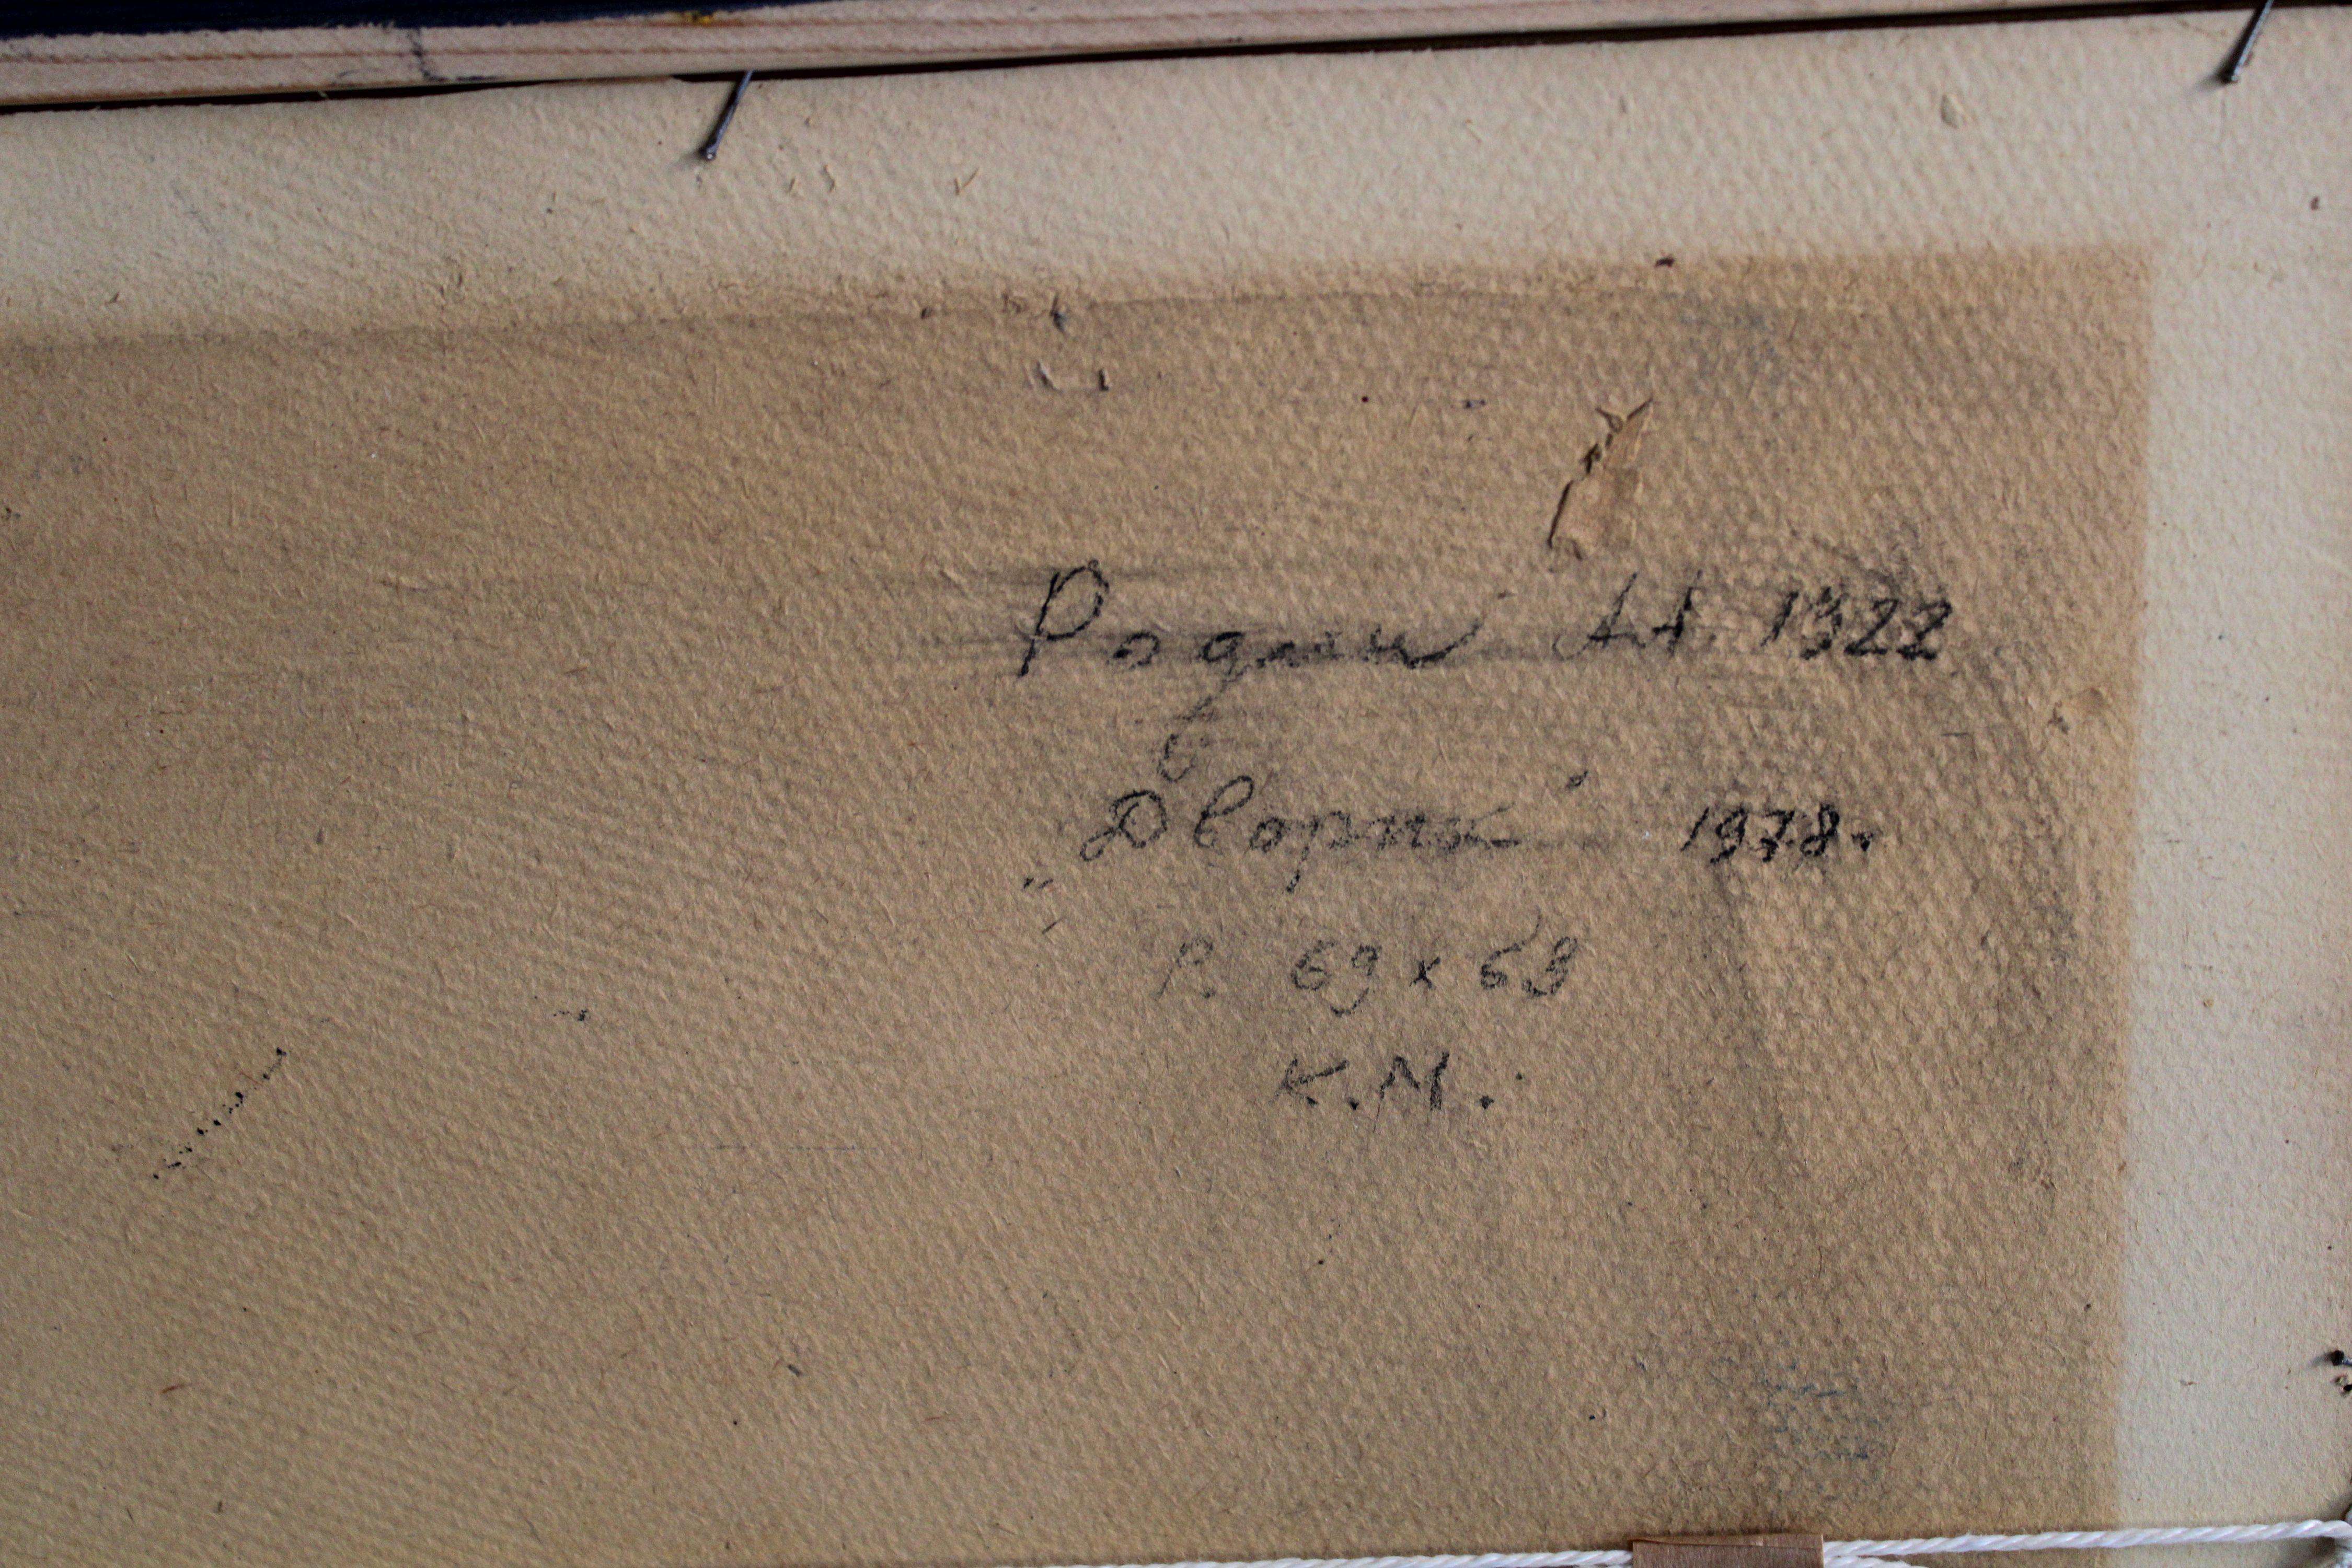 Родин А.А. 1922
„Дворик" 1978.
Р. 69 х 63
К.М.